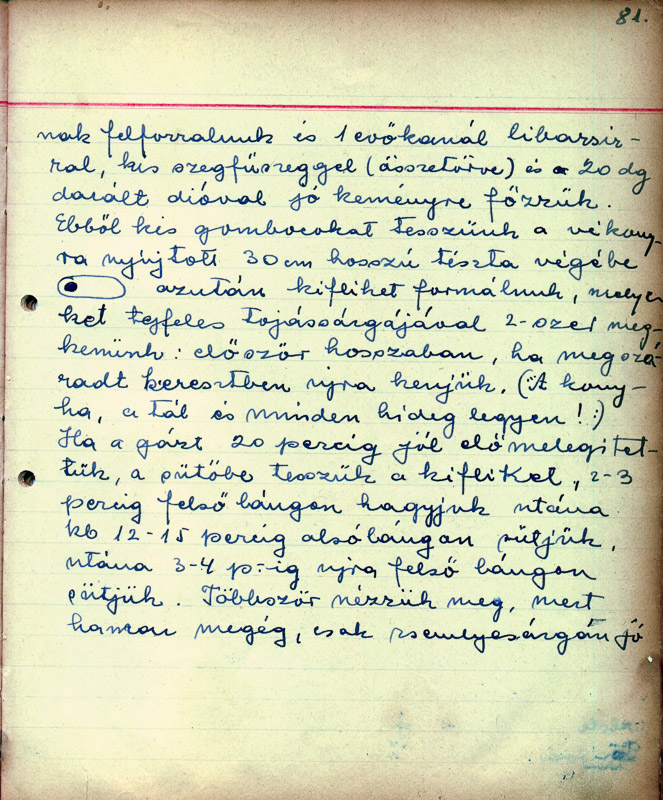 81.
nak felforralnunk és 1 evőkanál libazsir-
ral, kis szegfűszeggel (összetörve) és 20 dg
darált dióval jó keményre főzzük.
Ebből kis gombocokat teszünk a vékony-
ra nyújtott 30 cm hosszú tészta végébe
azután kifliket formálunk, melye-
ket tejfeles tojássárgájával 2-szer meg-
kenünk: először hosszában, ha megszá-
radt keresztben ujra kenjük. (:A kony-
ha, a tál és minden hideg legyen!:)
Ha a gázt 20 percig jól előmelegitet-
tük, a sütőbe tesszük a kifliket, 2-3
percig felső lángon hagyjuk utána
kb 12-15 percig alsólángon sütjük,
utána 3-4 p.-ig ujra felső lángon
sütjük. Többször nézzük meg, mert
hamar megég, csak zsemlyesárgán jó